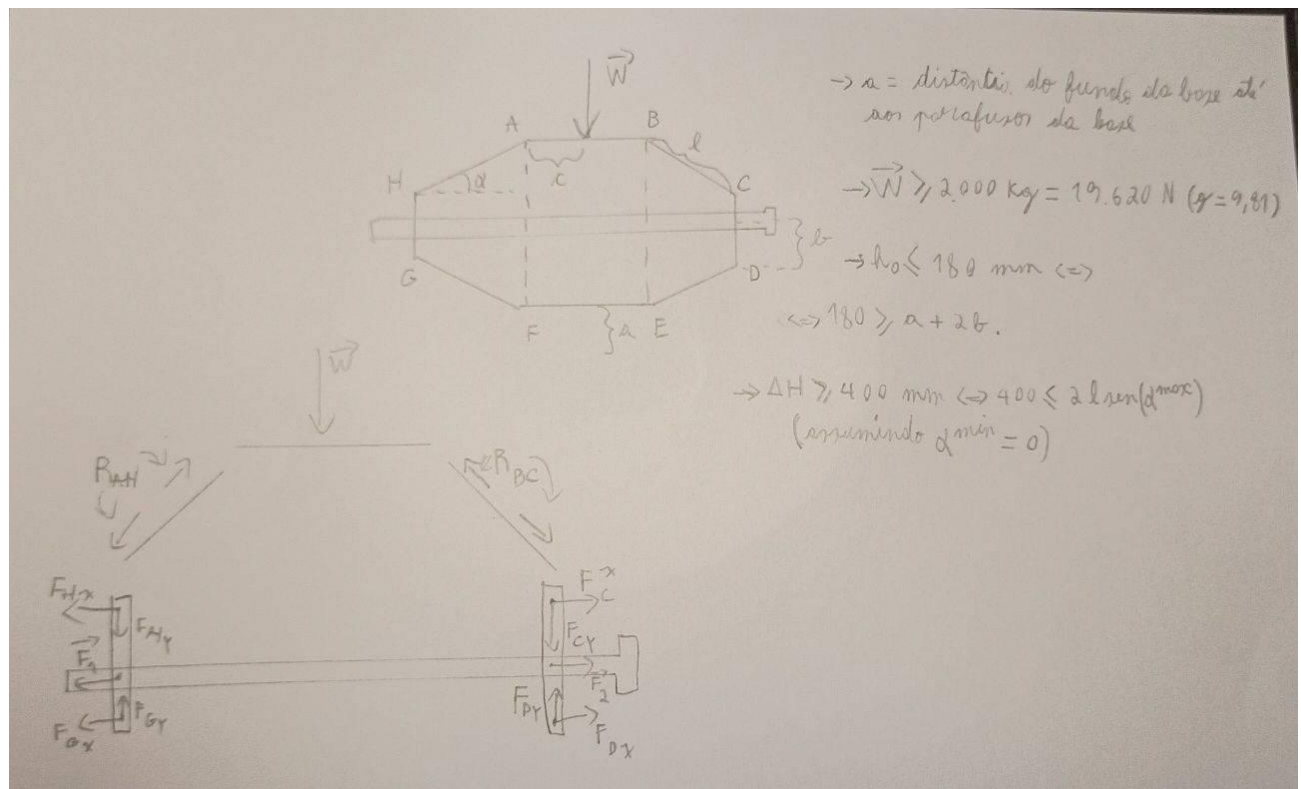 W
A
B
l
α
c
H
C
b
G
D
F
a
E
→ a = distância do fundo da base até
aos parafusos da base
→ W ≥ 2.000 kg = 19.620 N (g = 9,81)
→ h₀ ≤ 180 mm <=>
<=> 180 ≥ a + 2b.
→ ΔH ≥ 400 mm <=> 400 ≤ 2 l sen(α^max)
(assumindo α^min = 0)
W
R_AH
R_BC
F_Hx
F_Hy
F_1
F_Gy
F_Gx
F_C^x
F_Cy
F_2
F_Dy
F_Dx